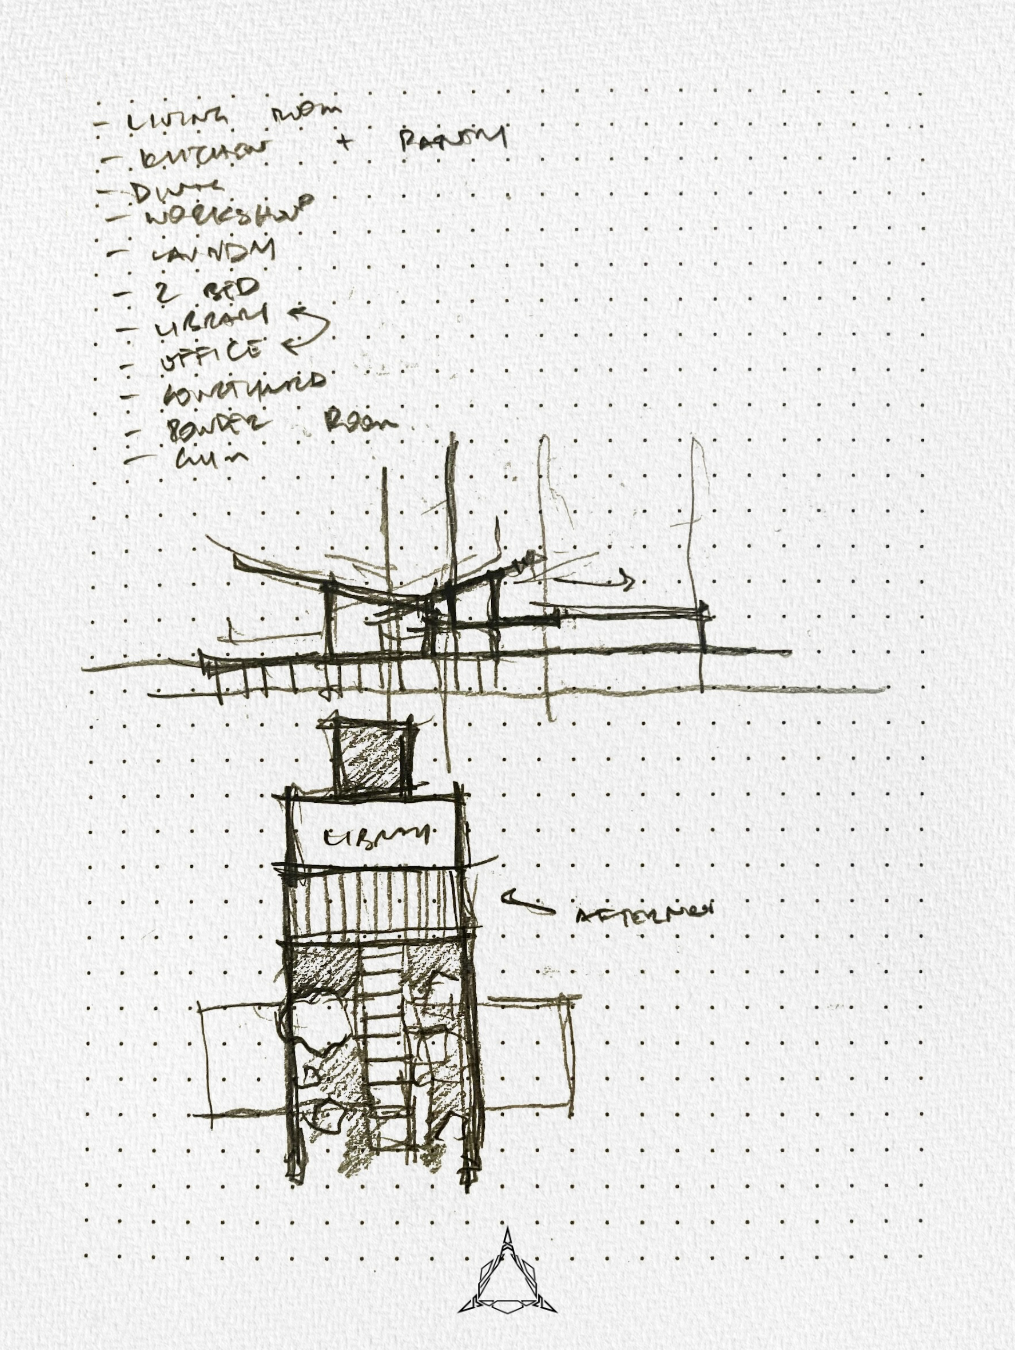 - LIVING ROOM
- KITCHEN + PANTRY
- DINING
- WORKSHOP
- LAUNDRY
- 2 BED
- LIBRARY
- OFFICE
- COURTYARD
- POWDER ROOM
- GYM
LIBRARY
AFTERNOON